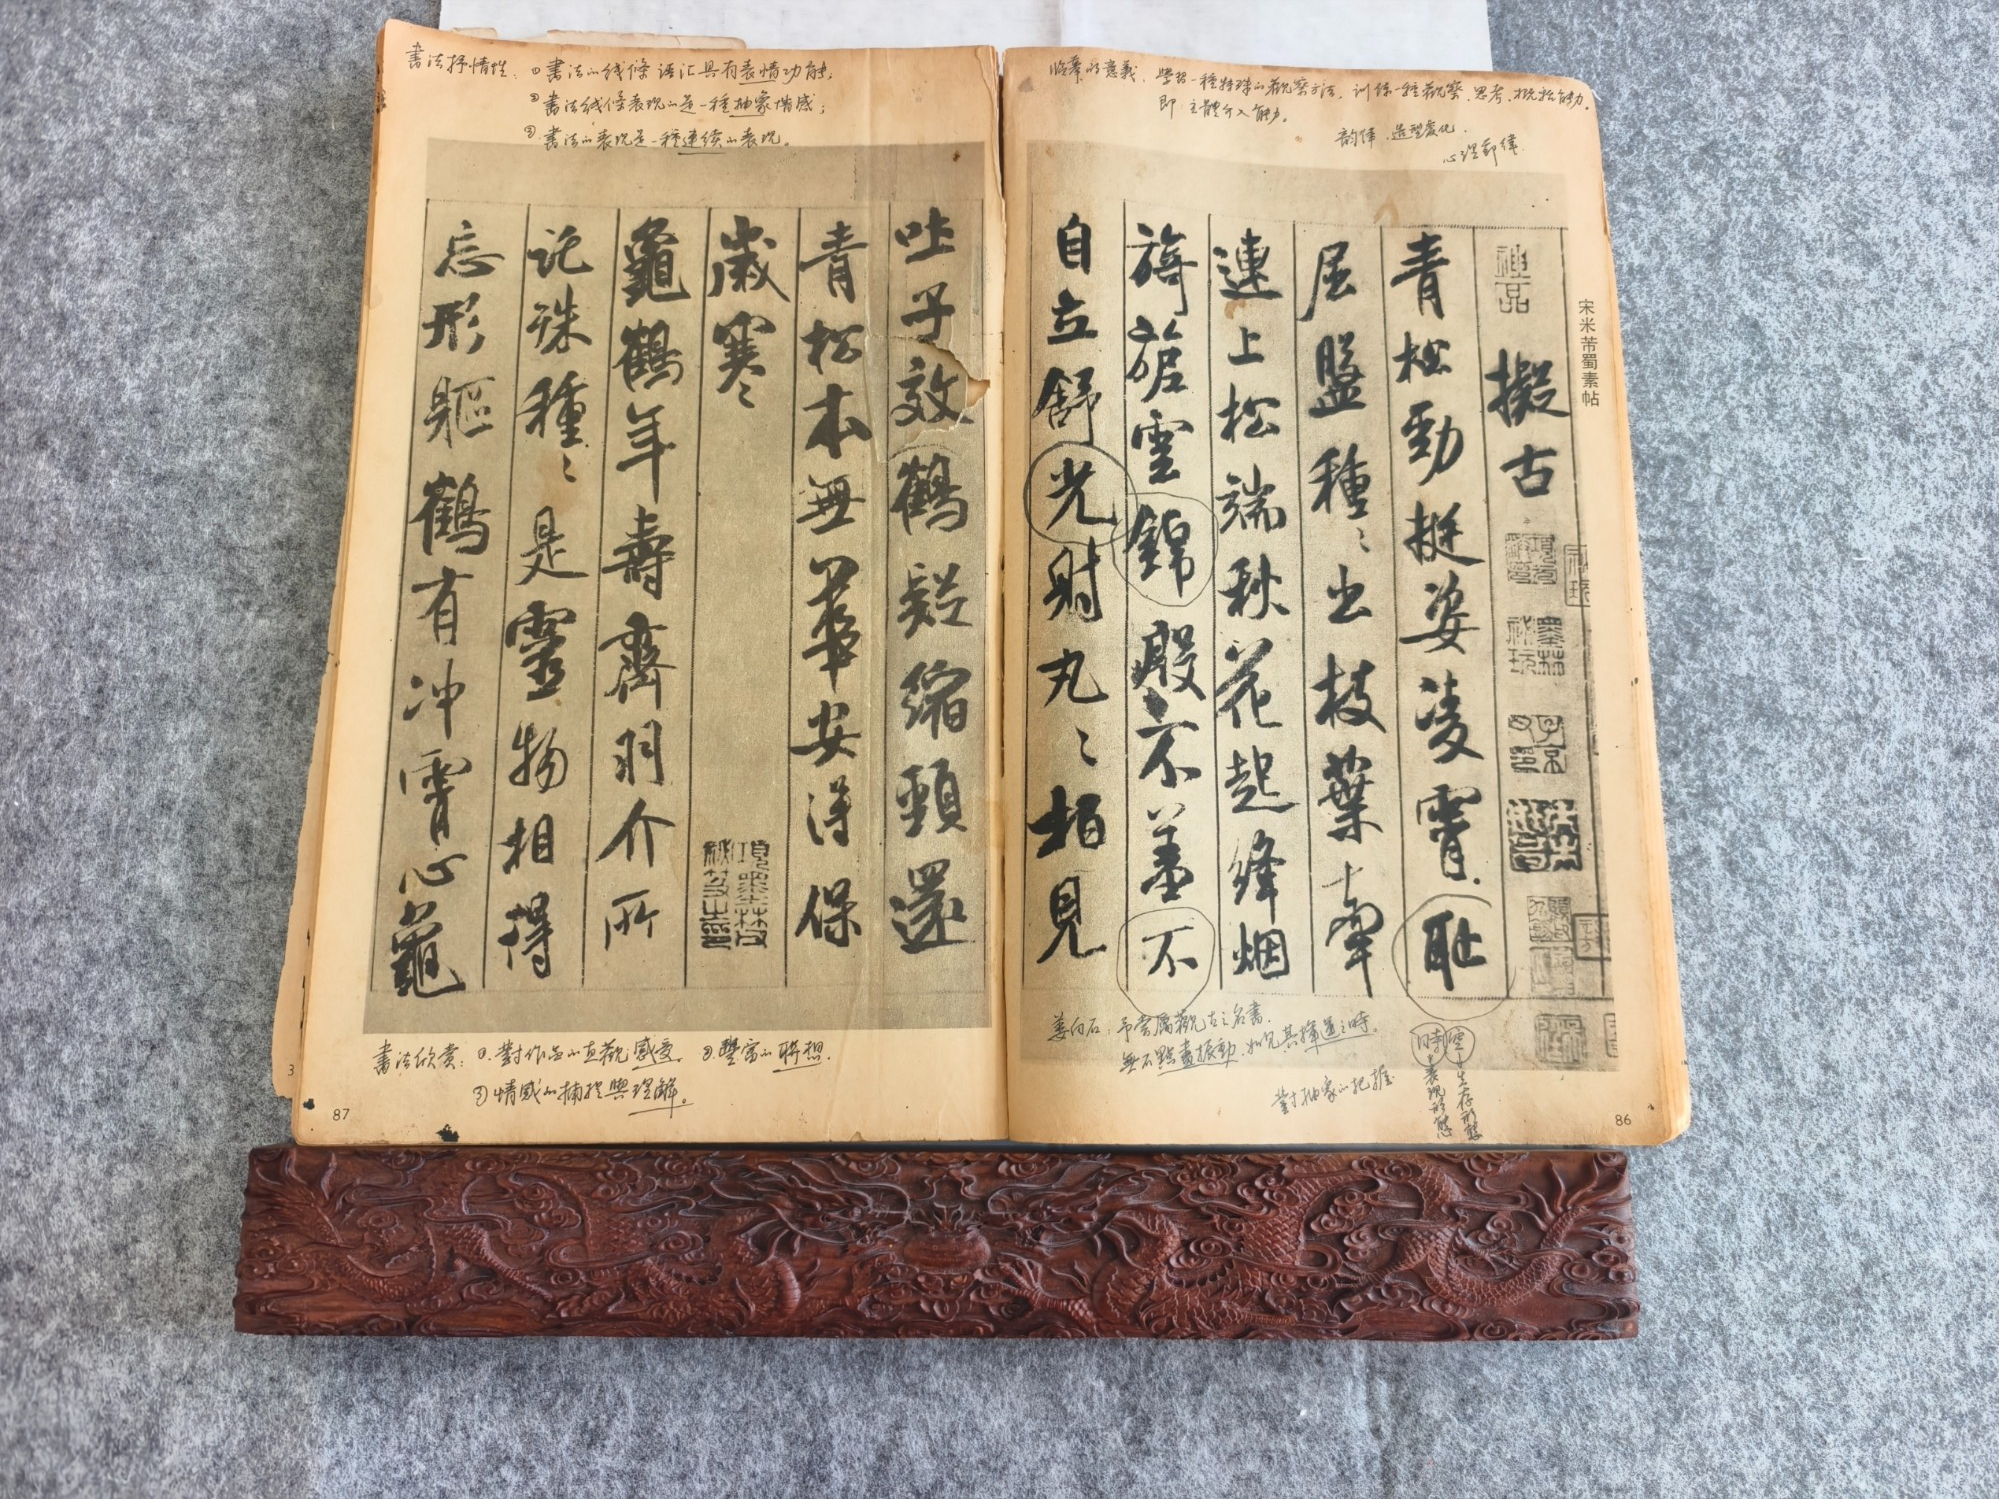 临摹的意義、學習一種特殊的觀察方法、训练一種觀察、思考、概括能力。
即主體介入能力。
韵律、造型變化、
心理節律
宋米芾蜀素帖
神品
擬古
青松勁挺姿凌霄耻
屈盤種〻出枝葉牽
連上松端秋花起絳烟
旖旎雲錦殷不羞不
自立舒光射丸〻柏見
姜白石:予嘗歷觀古之名書,
無不點畫振動,如見其揮運之時。
對抽象的把握
時空
生存形態
表現形態
86
書法抒情性:①書法的线條語汇具有表情功能;
②書法线條表現的是一種抽象情感;
③書法的表現是一種連续的表現。
吐子效鶴疑縮頸還
青松本無華安得保
歲寒
項墨林父秘笈之印
龜鶴年壽齊羽介所
託殊種〻是靈物相得
忘形軀鶴有冲霄心龜
書法欣赏:①對作品的直觀感受。②豐富的联想。
③情感的捕捉與理解。
87